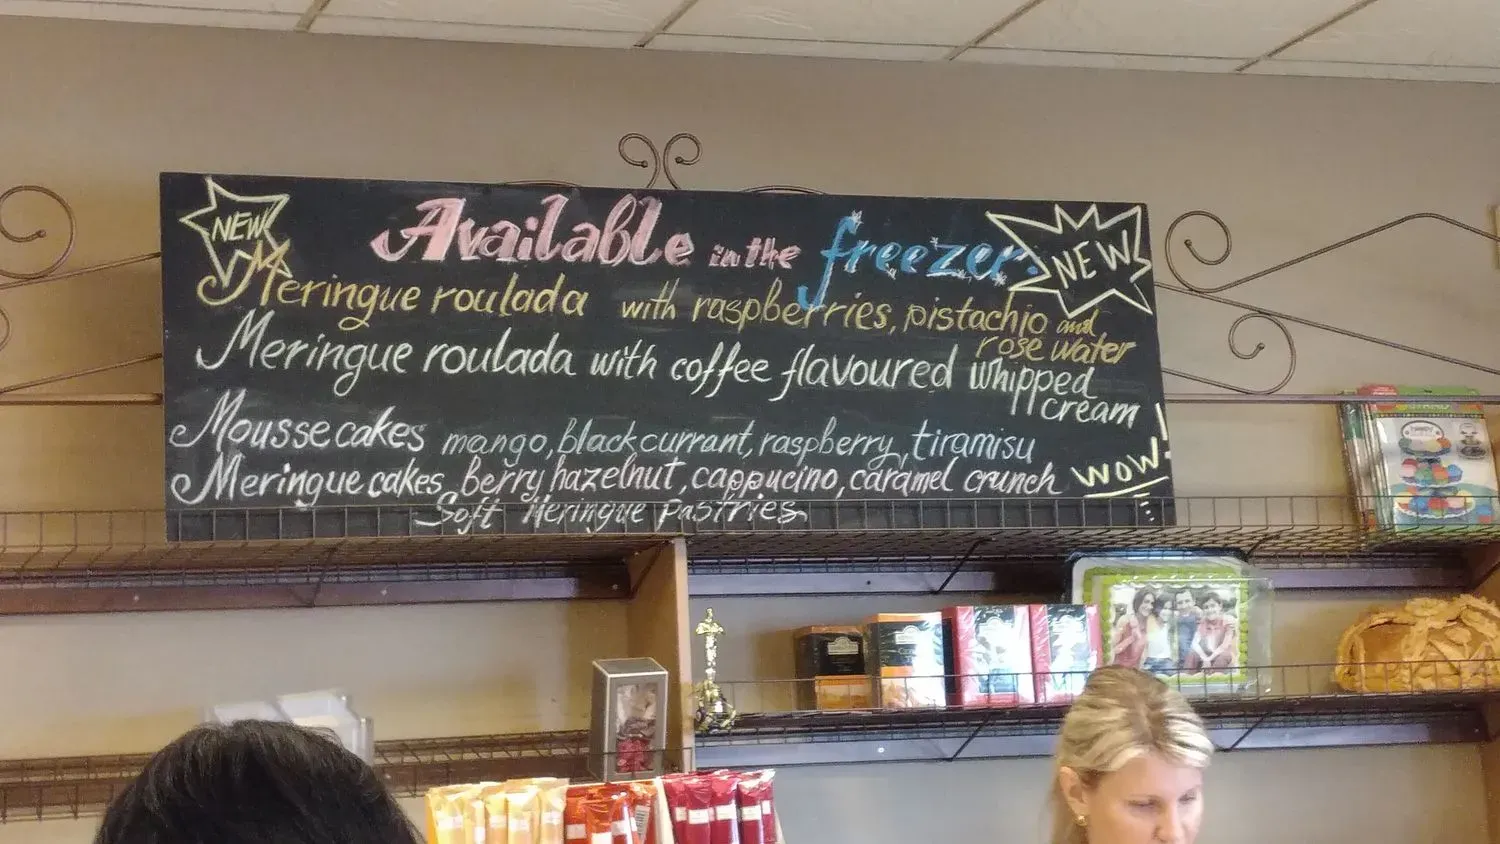 NEW
Available in the freezer.
NEW
Meringue roulada with raspberries, pistachio and
rose water
Meringue roulada with coffee flavoured whipped
cream
Mousse cakes mango, blackcurrant, raspberry, tiramisu
Meringue cakes berry hazelnut, cappucino, caramel crunch
WOW!
Soft Meringue Pastries